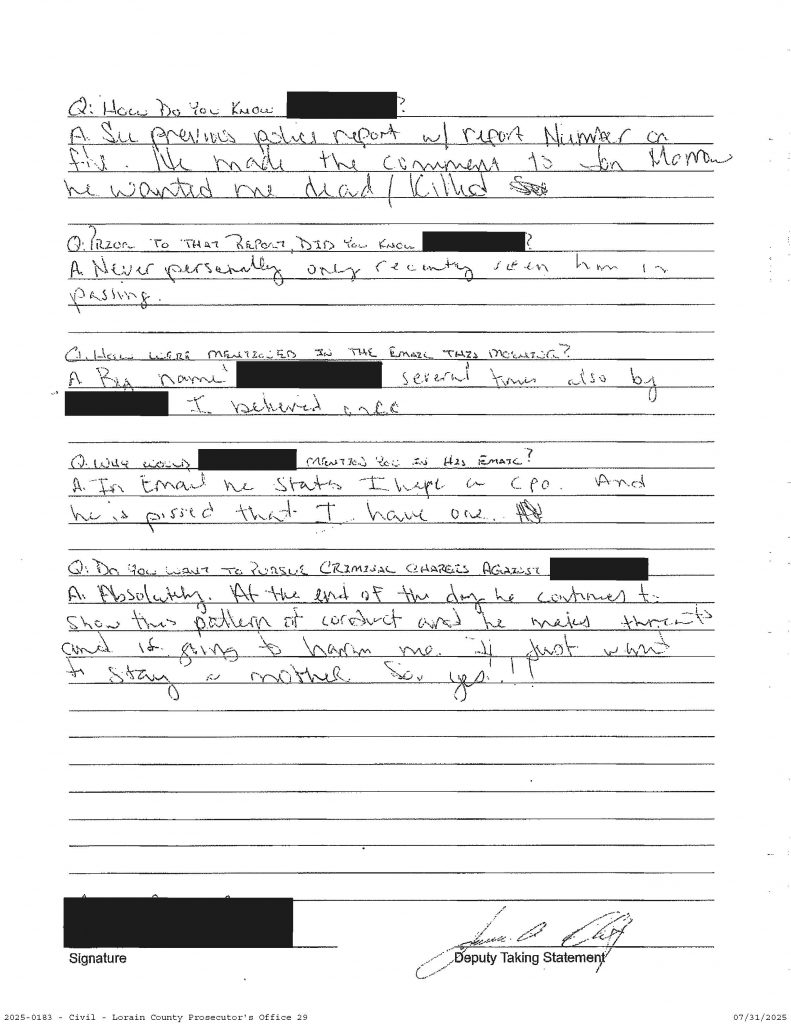 Q: How Do You Know ?
A. See previous police report w/ report Number on
file. He made the comment to Jon Morrow
he wanted me dead / Killed
Q. Prior to that Report, Did You Know ?
A. Never personally only recently seen him in
passing.
Q. How were mentioned in the email this morning?
A By name several times also by
I believed once
Q. Why would mention you in his email?
A. In Email he States I kept a CPO. And
he is pissed that I have one.
Q: Do you want to pursue criminal charges against
A: Absolutely. At the end of the day he continues to
show this pattern of conduct and he makes threats
and is going to harm me. I just want
to stay a mother. So, yes!!!
Signature
Deputy Taking Statement
2025-0183 - Civil - Lorain County Prosecutor's Office 29
07/31/2025